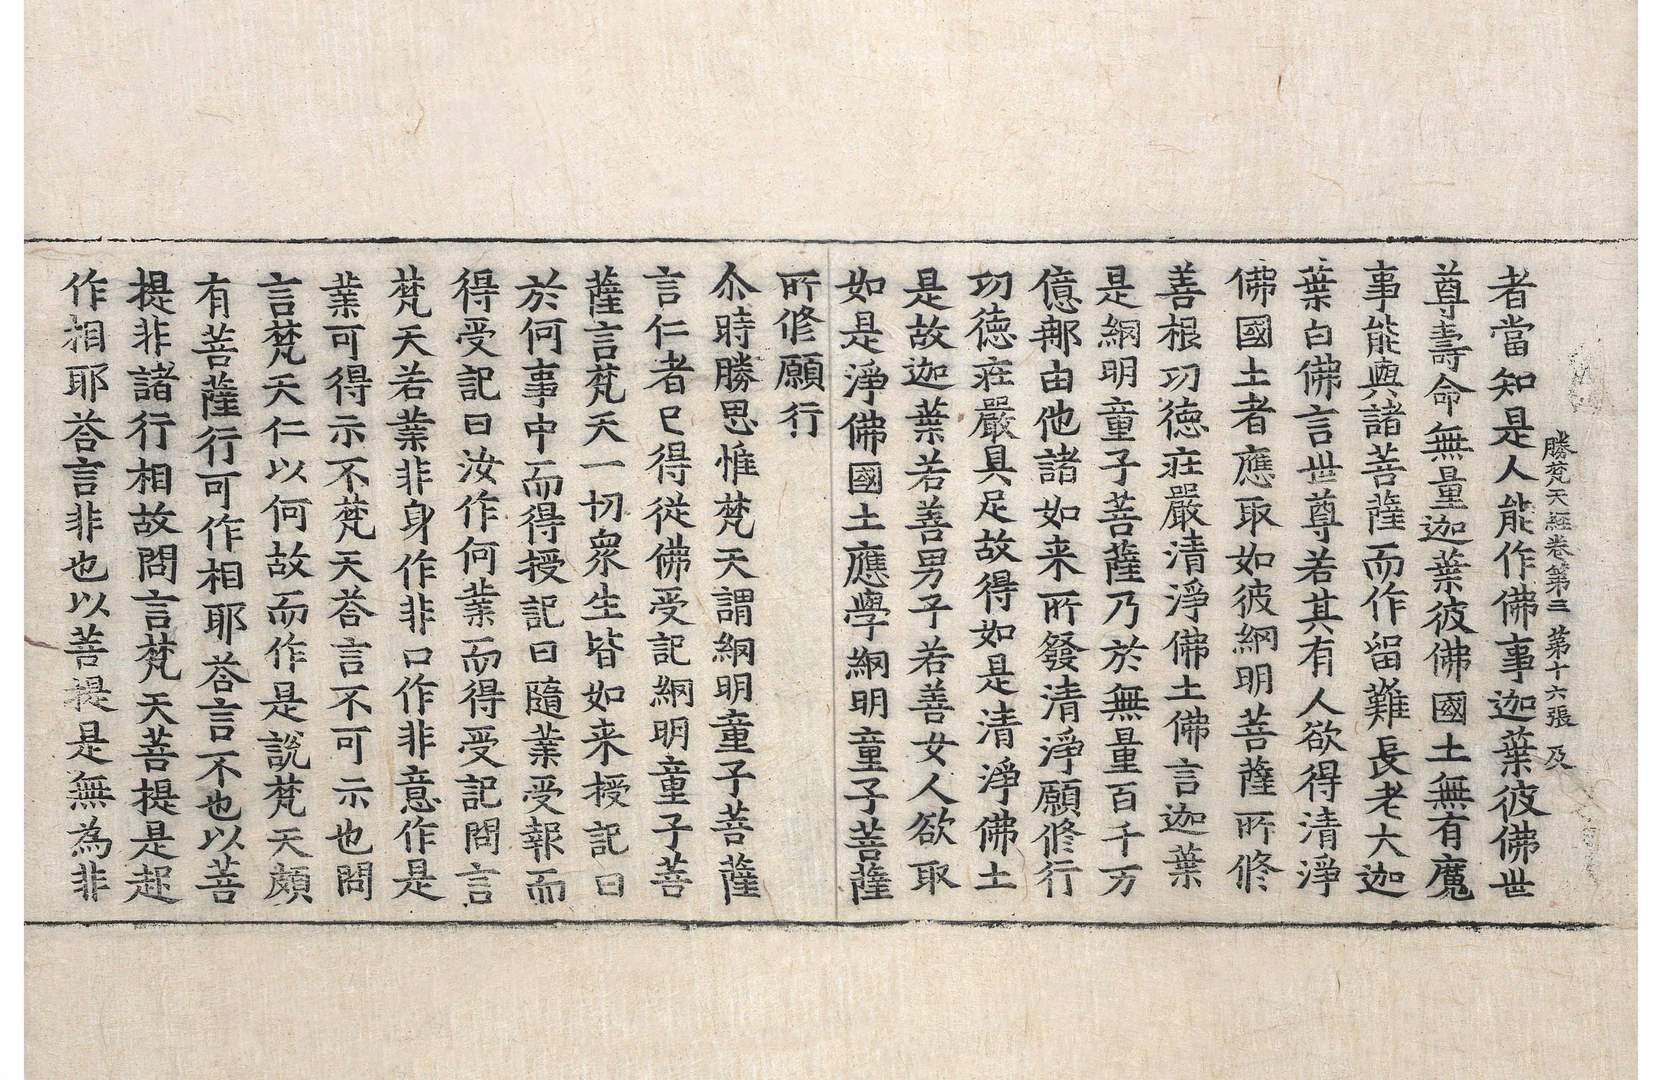 勝梵天經卷第三　第十六張　及
者當知是人能作佛事迦葉彼佛世
尊壽命無量迦葉彼佛國土無有魔
事能與諸菩薩而作留難長老大迦
葉白佛言世尊若其有人欲得清淨
佛國土者應取如彼網明菩薩所修
善根功德莊嚴清淨佛土佛言迦葉
是網明童子菩薩乃於無量百千万
億那由他諸如来所發清淨願修行
功德莊嚴具足故得如是清淨佛土
是故迦葉若善男子若善女人欲取
如是淨佛國土應學網明童子菩薩
所修願行
尒時勝思惟梵天謂網明童子菩薩
言仁者已得從佛受記網明童子菩
薩言梵天一切衆生皆如来授記曰
於何事中而得授記曰隨業受報而
得受記曰汝作何業而得受記問言
梵天若業非身作非口作非意作是
業可得示不梵天荅言不可示也問
言梵天仁以何故而作是說梵天頗
有菩薩行可作相耶荅言不也以菩
提非諸行相故問言梵天菩提是起
作相耶荅言非也以菩提是無為非